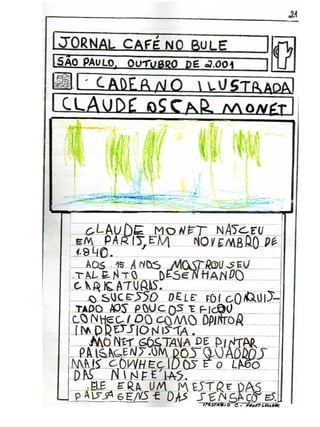 21
JORNAL CAFÉ NO BULE
SÃO PAULO, OUTUBRO DE 2.001
CADERNO ILUSTRADA
CLAUDE OSCAR MONET
CLAUDE MONET NASCEU
EM PARIS, EM NOVEMBRO DE
1.840.
AOS 15 ANOS MOSTROU SEU
TALENTO DESENHANDO
CARICATURAS.
O SUCESSO DELE FOI CONQUIS-
TADO AOS POUCOS E FICOU
CONHECIDO COMO O PINTOR
IMPRESSIONISTA.
MONET GOSTAVA DE PINTAR
PAISAGENS. UM DOS QUADROS
MAIS CONHECIDOS É O LAGO
DAS NINFEIAS.
ELE ERA UM MESTRE DAS
PAISAGENS E DAS SENSAÇÕES.